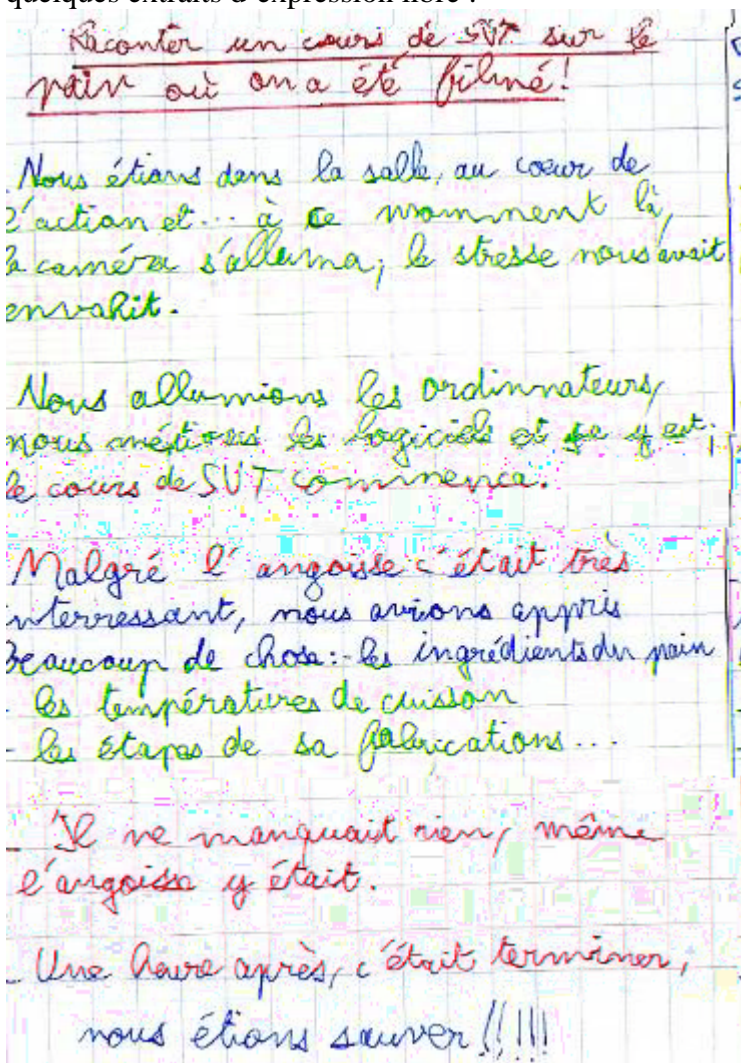 quelques extraits d'expression libre :
Raconter un cours de SVT sur le
pain où on a été filmé!
Nous étions dans la salle, au coeur de
l'action et... à ce momment là,
la caméra s'alluma; le stresse nous avait
envahit.
Nous allumions les ordinnateurs,
nous mettions les logiciels et ça y est.
le cours de SVT commença.
Malgré l'angoisse c'était très
interressant, nous avions appris
beaucoup de chose: - les ingrédients du pain
- les températures de cuisson
- les étapes de sa fabrications...
Il ne manquait rien, même
l'angoisse y était.
Une heure après, c'était terminer,
nous étions sauver !!!!!